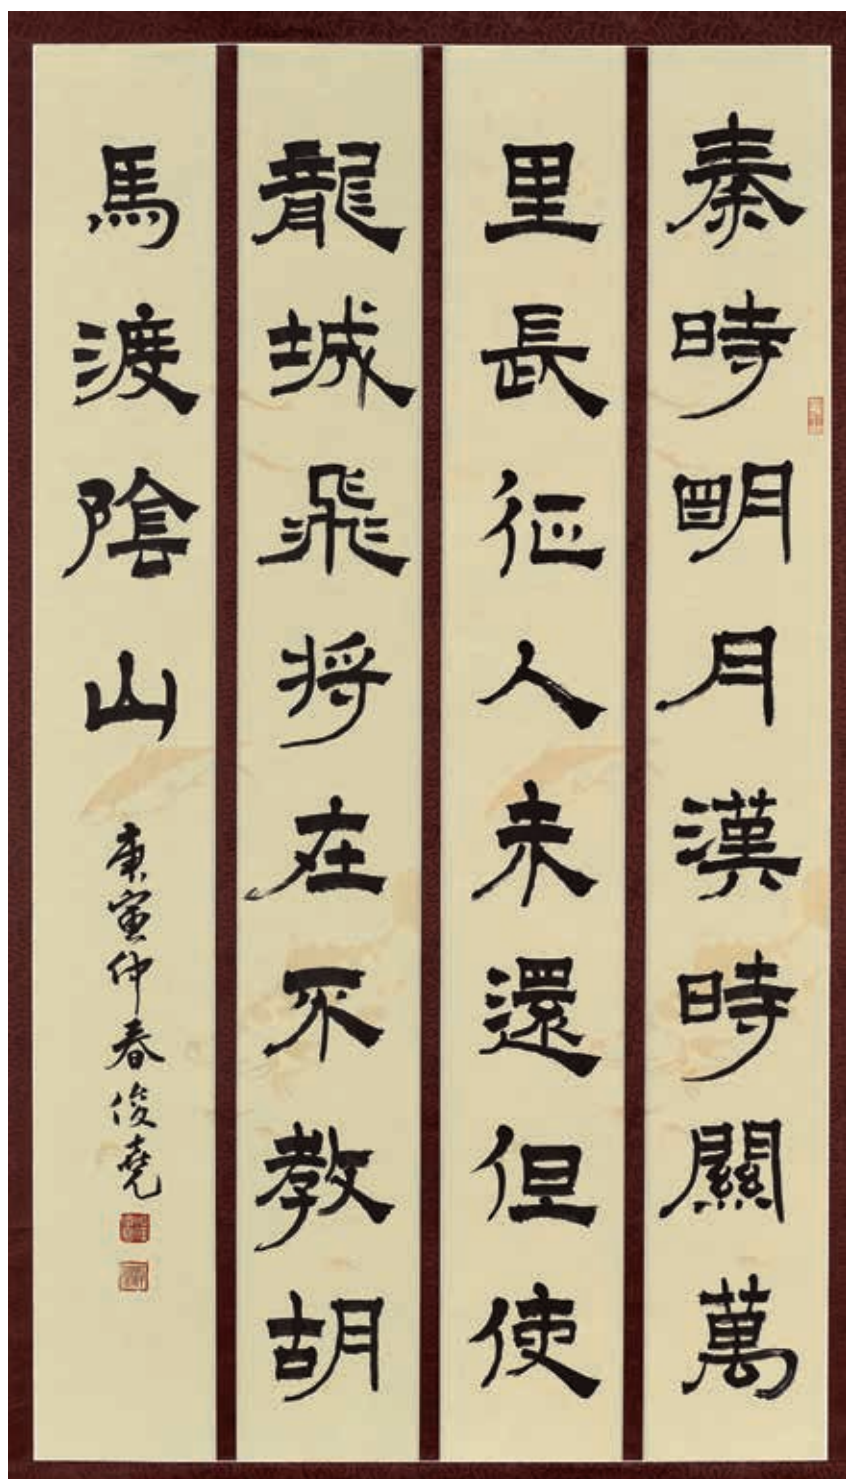 秦時明月漢時關萬
里長征人未還但使
龍城飛將在不教胡
馬渡陰山
庚寅仲春俊堯